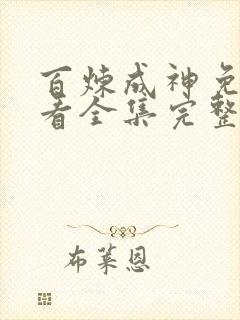 百炼成神免
看全集完整
布莱恩